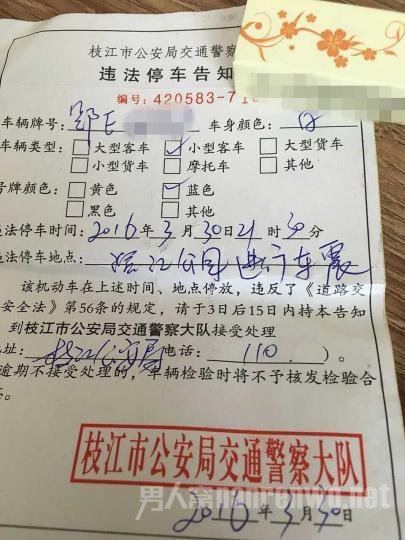 枝江市公安局交通警察
违法停车告知
编号：420583-71
车辆牌号：鄂E 车身颜色：白
车辆类型：大型客车 小型客车 大型货车
小型货车 摩托车 其他
号牌颜色：黄色 蓝色
黑色 其他
违法停车时间：2016年3月30日21时30分
违法停车地点：滨江公园进行车震
该机动车在上述时间、地点停放，违反了《道路交
安全法》第56条的规定，请于3日后15日内持本告知
到枝江市公安局交通警察大队接受处理
地址：枝江公安局 电话：110）。
逾期不接受处理的，车辆检验时将不予核发检验合
枝江市公安局交通警察大队
2016年3月30日
男人窝nanrenwo.net